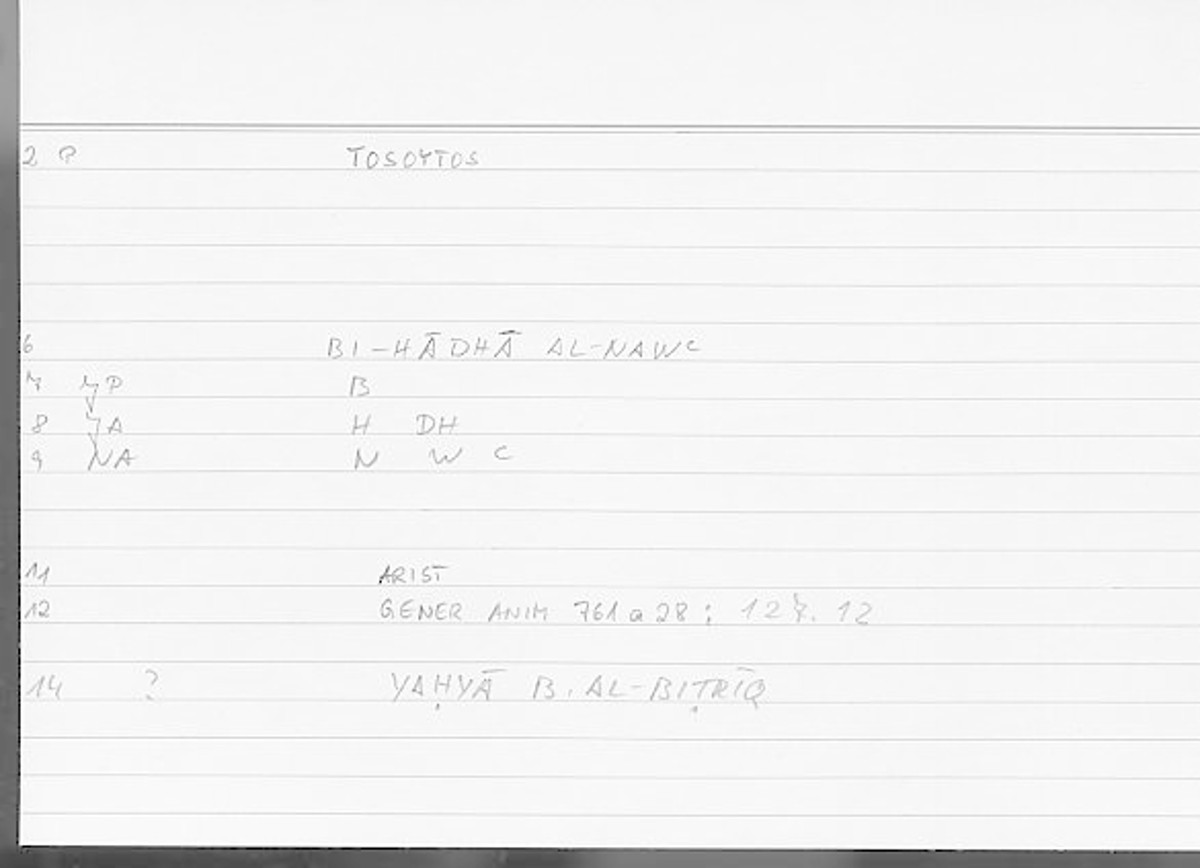 2 P TOSOYTOS
6 BI-HĀDHĀ AL-NAWC
7 P B
8 A H DH
9 NA N W C
11 ARIST
12 GENER ANIM 761 a 28 : 12 . 12
14 ? YAḤYĀ B. AL-BIṬRĪQ